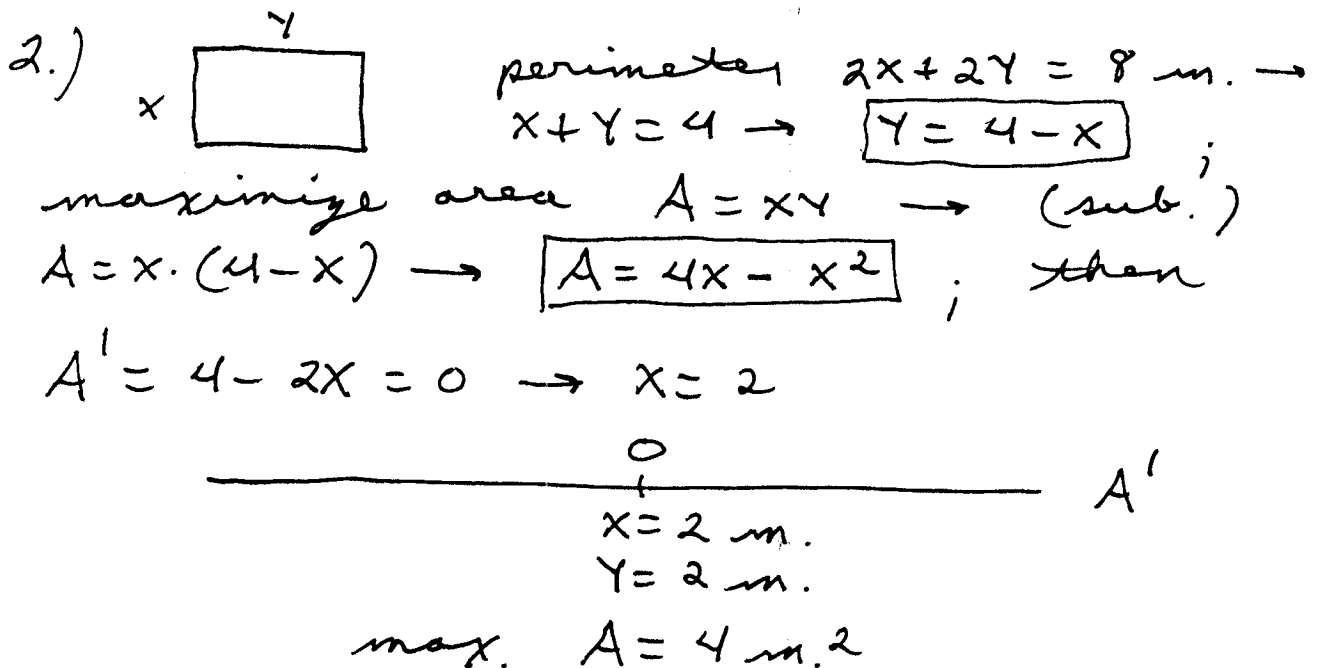 2.) Y
X perimeter 2X + 2Y = 8 m. →
X + Y = 4 → Y = 4 - X ;
maximize area A = XY → (sub.)
A = X · (4 - X) → A = 4X - X² ; then
A' = 4 - 2X = 0 → X = 2
0
A'
X = 2 m.
Y = 2 m.
max. A = 4 m.²